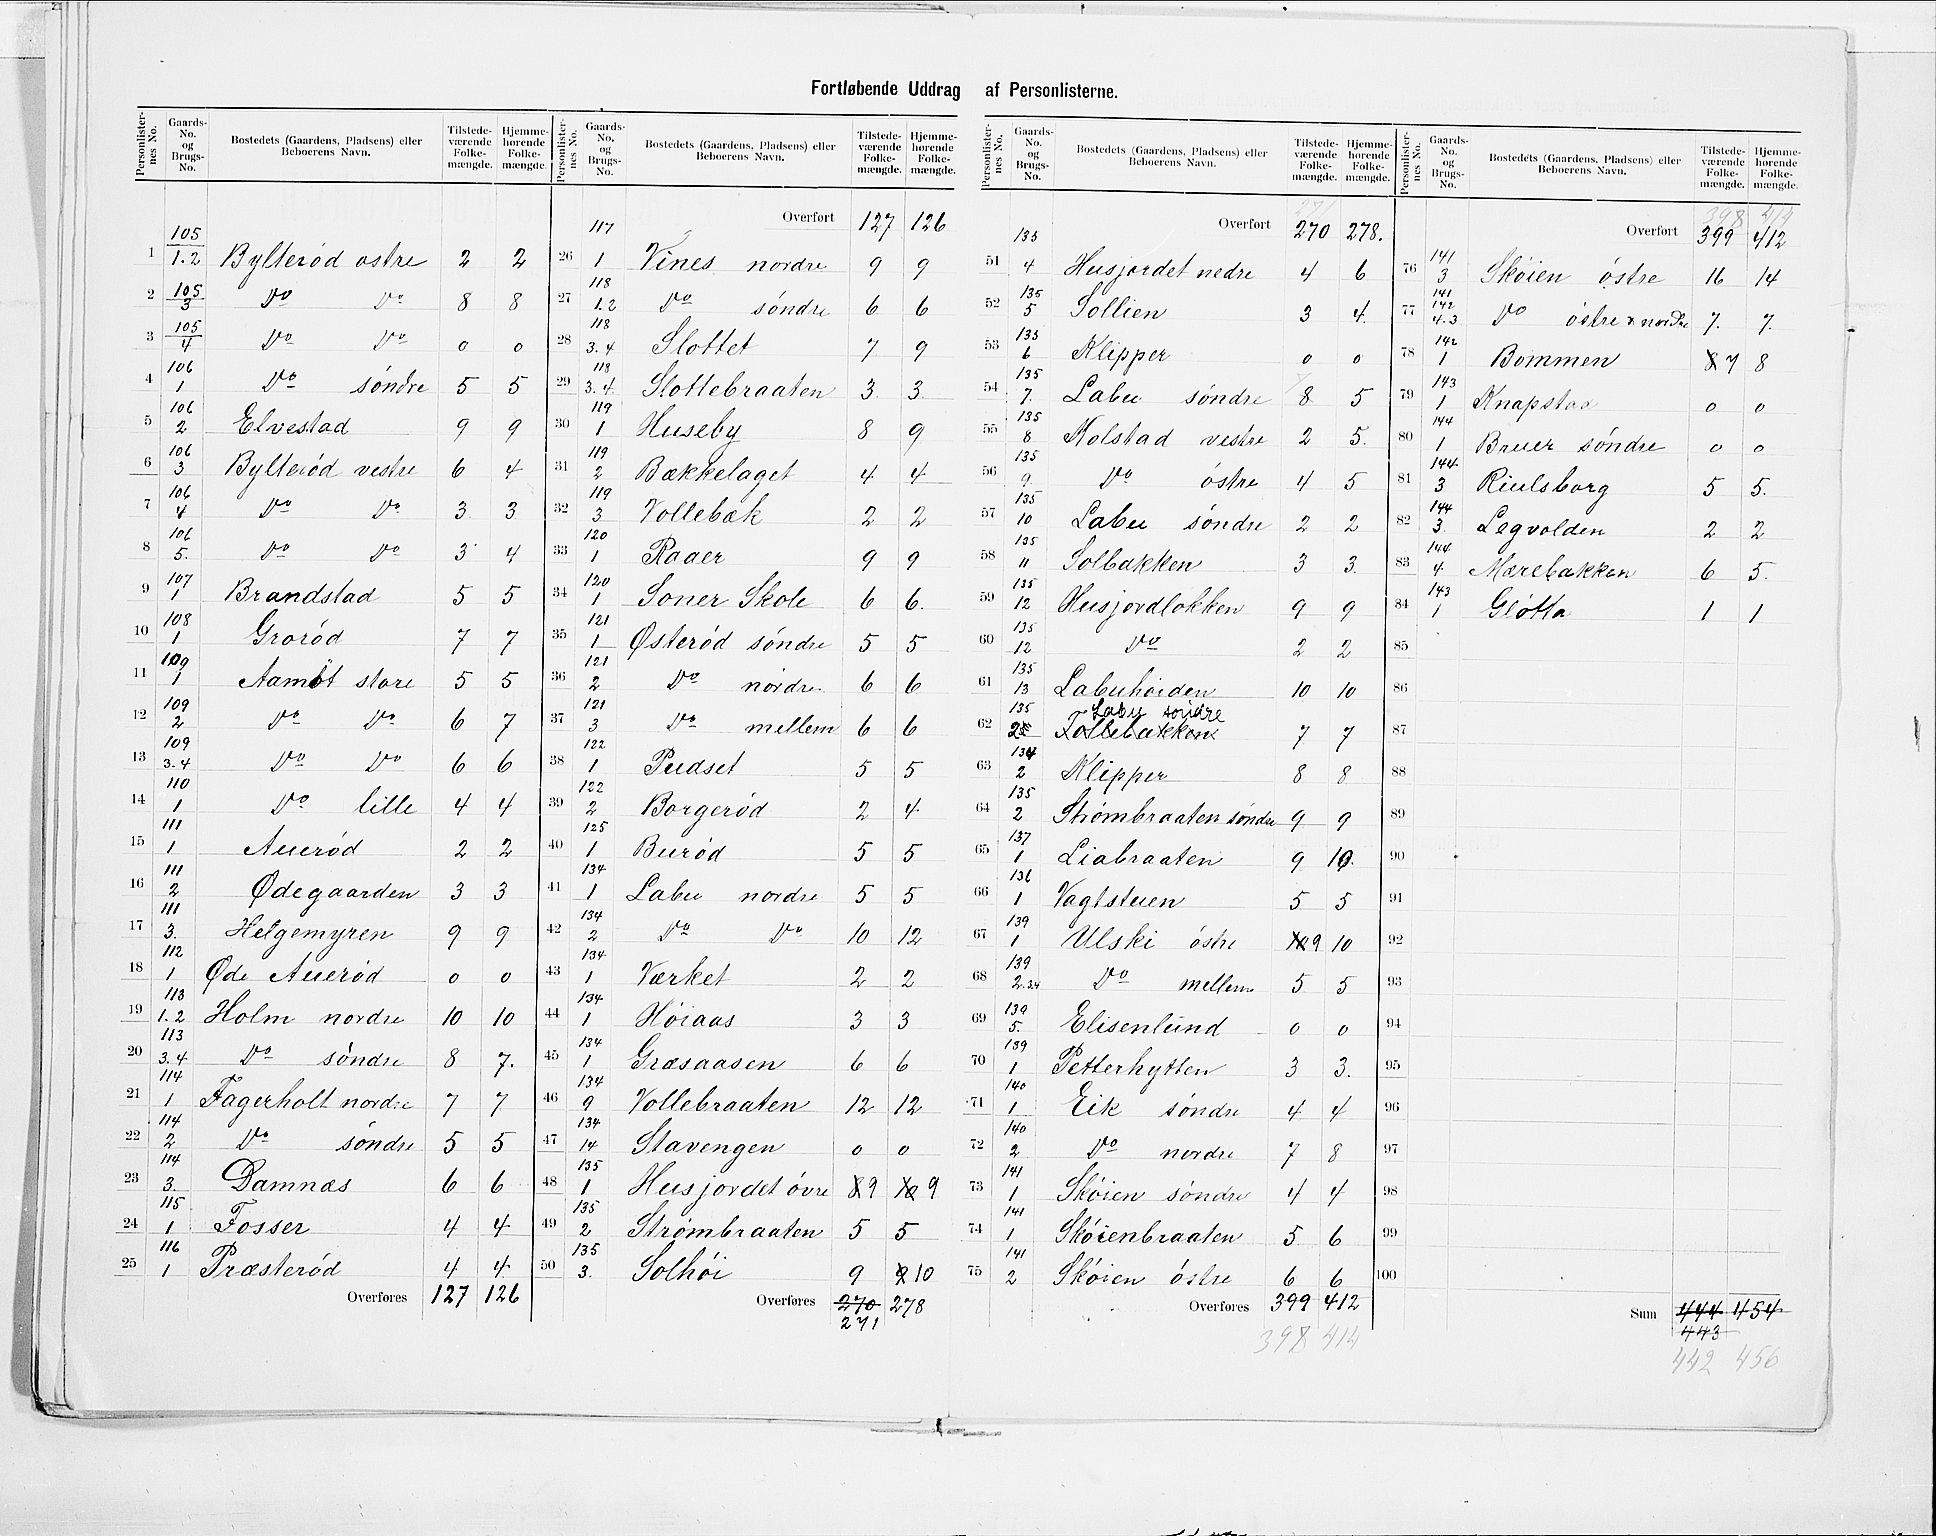 Fortløbende Uddrag af Personlisterne.
Personlisternes No. Gaards-No. og Brugs-No. Bostedets (Gaardens, Pladsens) eller Beboerens Navn. Tilstedeværende Folkemængde. Hjemmehørende Folkemængde.
1 105/1.2 Bylterød østre 2 2
2 105/3 Do Do 8 8
3 105/4 Do Do 0 0
4 106/1 Do søndre 5 5
5 106/2 Elvestad 9 9
6 106/3 Bylterød vestre 6 4
7 106/4 Do Do 3 3
8 106/5. Do Do 3 4
9 107/1 Brandstad 5 5
10 108/1 Grorød 7 7
11 109/1 Aamot store 5 5
12 109/2 Do Do 6 7
13 109/3.4 Do Do 6 6
14 110/1 Do lille 4 4
15 111/1 Auerød 2 2
16 111/2 Ødegaarden 3 3
17 111/3. Helgemyren 9 9
18 112/1 Øde Auerød 0 0
19 113/1.2 Holm nordre 10 10
20 113/3.4 Do søndre 8 7.
21 114/1 Fagerholt nordre 7 7
22 114/2 Do søndre 5 5
23 114/3. Damnæs 6 6
24 115/1 Fosser 4 4
25 116/1 Præsterød 4 4
Overføres 127 126
Personlisternes No. Gaards-No. og Brugs-No. Bostedets (Gaardens, Pladsens) eller Beboerens Navn. Tilstedeværende Folkemængde. Hjemmehørende Folkemængde.
Overført 127 126
26 117/1 Vines nordre 9 9
27 118/1.2 Do søndre 6 6
28 118/3.4 Slottet 7 9
29 118/3.4 Slottebraaten 3 3
30 119/1 Huseby 8 9
31 119/2 Bækkelaget 4 4
32 119/3 Vollebæk 2 2
33 120/1 Raaer 9 9
34 120/1 Soner Skole 6 6.
35 121/1 Østerød søndre 5 5
36 121/2 Do nordre 6 6
37 121/3 Do mellem 6 6
38 122/1 Pudset 5 5
39 122/2 Borgerød 2 4
40 125/1 Burød 5 5
41 134/1 Labu nordre 5 5
42 134/2 Do Do 10 12
43 134/1 Værket 2 2
44 134/1 Høiaas 3 3
45 134/1 Græsaasen 6 6
46 134/9 Vollebraaten 12 12
47 134/14 Stavengen 0 0
48 135/1 Husjordet øvre 8 9 10 9
49 135/2 Strømbraaten 5 5
50 135/3. Solhøi 9 9 10
Overføres 270 278
271
Personlisternes No. Gaards-No. og Brugs-No. Bostedets (Gaardens, Pladsens) eller Beboerens Navn. Tilstedeværende Folkemængde. Hjemmehørende Folkemængde.
271
Overført 270 278.
51 135/4 Husjordet nedre 4 6
52 135/5 Sollien 3 4.
53 135/6 Klipper 0 0
54 135/7. Labu søndre 8 5
55 135/8 Kolstad vestre 2 5.
56 135/9. Do østre 4 5
57 135/10 Labu søndre 2 2
58 135/11 Solbakken 3 3.
59 135/12 Husjordløkken 9 9
60 135/12 Do 2 2
61 135/13 Labuheiden 10 10
Labu søndre
62 135 Tollebakken 7 7
63 134/2 Klipper 8 8
64 135/2 Strømbraaten søndre 9 9
65 137/1 Liabraaten 9 10.
66 136/1 Vagtstuen 5 5
67 139/1 Ulski østre 10 9 10
68 139/2.34 Do mellem 5 5
69 139/5. Elisenlund 0 0
70 139/1 Petterhytten 3 3.
71 140/1 Eik søndre 4 4
72 140/2 Do nordre 7 8
73 141/1 Skøien søndre 4 4
74 141/1 Skøienbraaten 5 6
75 141/2 Skøien østre 6 6
Overføres 399 412
398 414
Personlisternes No. Gaards-No. og Brugs-No. Bostedets (Gaardens, Pladsens) eller Beboerens Navn. Tilstedeværende Folkemængde. Hjemmehørende Folkemængde.
398 414
Overført 399 412
76 141/3 Skøien østre 16 14
77 141 142/4.3 Do østre & nordre 7. 7.
78 142/1 Bommen 8 7 8
79 143/1 Knapstad 0 0
80 144/1 Bruer søndre 0 0
81 144/3 Riulsborg 5 5.
82 144/3. Legvolden 2 2
83 144/4. Mærebakken 6 5.
84 143/1 Gløtta 1 1
85
86
87
88
89
90
91
92
93
94
95
96
97
98
99
100
Sum 444 454
443
442 456